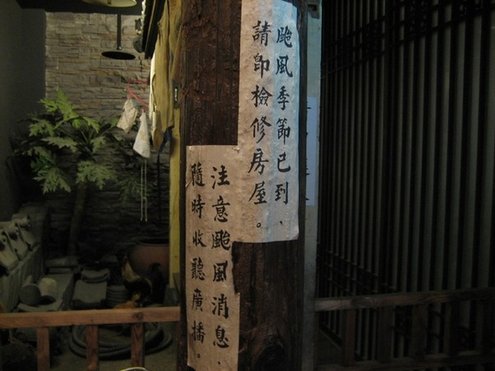 颱風季節已到、
請即檢修房屋。
注意颱風消息、
隨時收聽廣播。